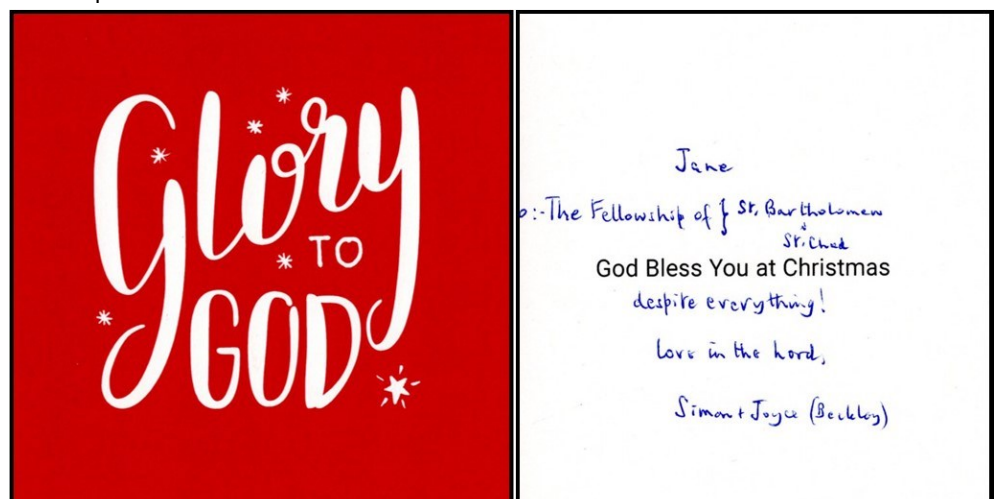 Glory
TO
GOD
Jane
o:- The Fellowship of } St. Bartholomew
&
St. Chad
God Bless You at Christmas
despite everything!
Love in the Lord,
Simon + Joyce (Beckley)